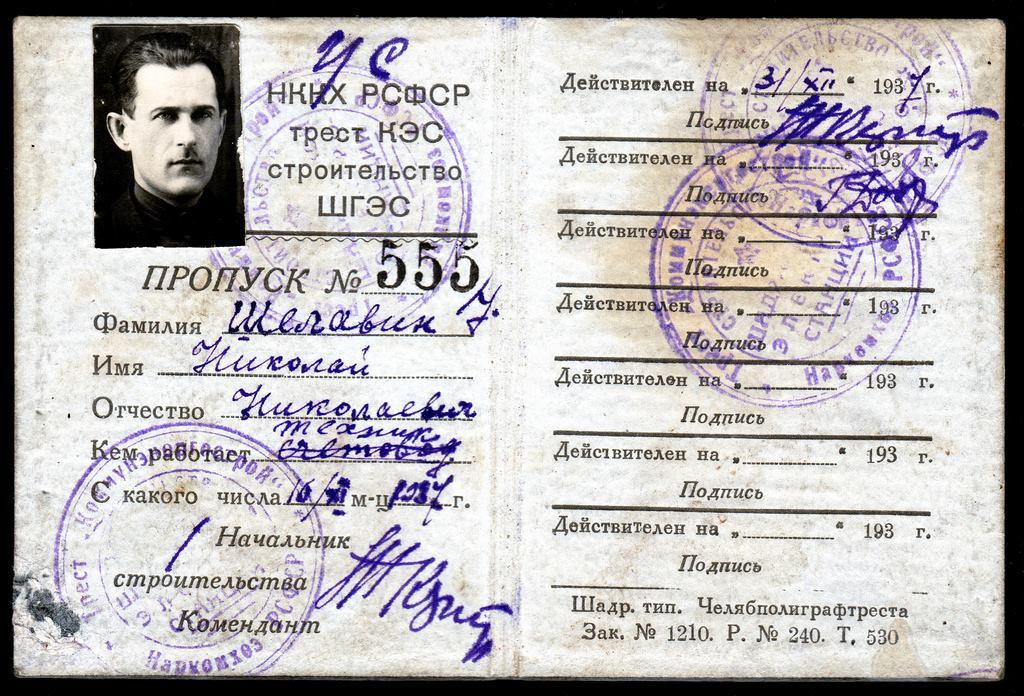 УС
НККХ РСФСР
трест КЭС
строительство
ШГЭС
ПРОПУСК № 555
Фамилия Шелавин
Имя Николай
Отчество Николаевич
техник
Кем работает счетовод
С какого числа 16/XI м-ц 1937 г.
Начальник
строительства
Комендант
Трест „Коммунэнергострой“
Наркомхоз РСФСР
Действителен на „31/XII“ 1937 г.
Подпись
Действителен на „ “ 193 г.
Подпись
Действителен на „ “ 193 г.
Подпись
Действителен на „ “ 193 г.
Подпись
Действителен на „ “ 193 г.
Подпись
Действителен на „ “ 193 г.
Подпись
Действителен на „ “ 193 г.
Подпись
Шадр. тип. Челябполиграфтреста
Зак. № 1210. Р. № 240. Т. 530